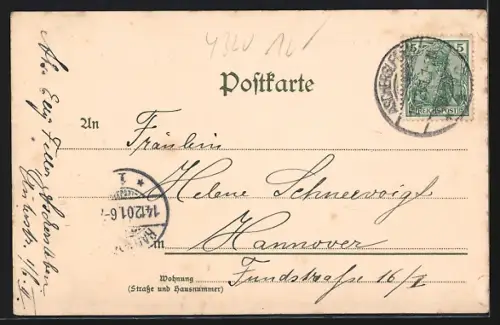 4320 10
Postkarte
5 5
REICHSPOST
An
Fräulein
Helene Schneevoigt
in Hannover
Wohnung
(Straße und Hausnummer)
Fundstraße 16/I
14.12.01.6-7
Abs. Elly